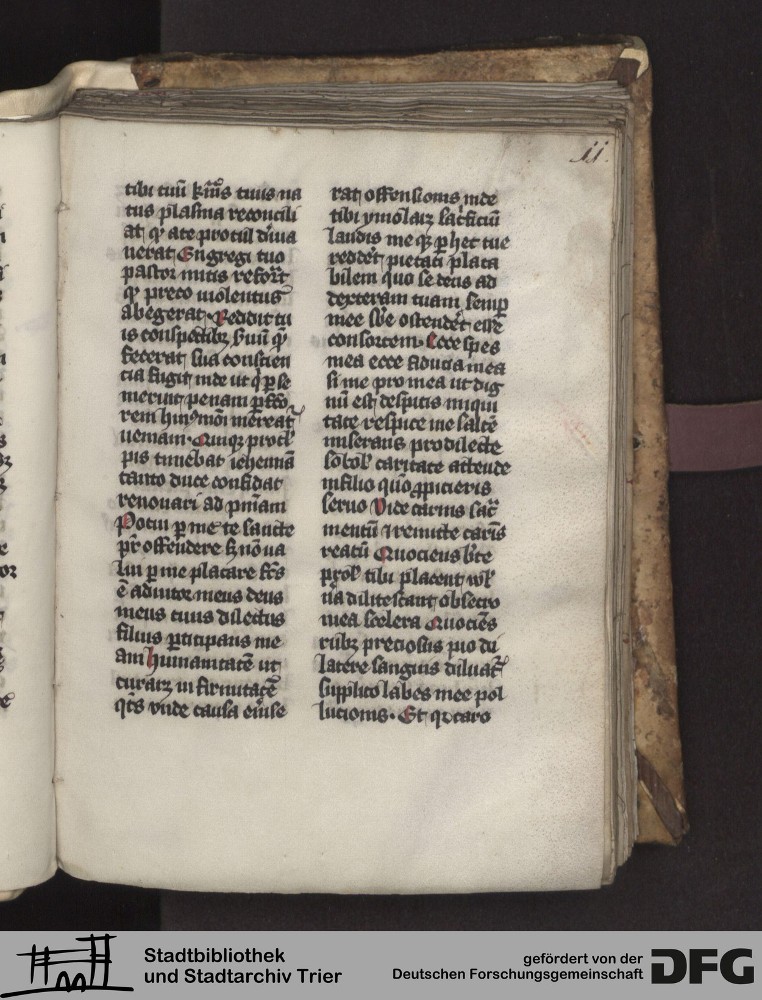 11.
tibi tuū kr̄ms tuus na
tus plasma reconcili
at q̢ ate procul diuia
uerat En gregi tuo
pastor mitis refort
q̢ predo uiolentus
abegerat Reddidit tu
is conspectibꝫ
fecerat sua conscien
cia fugit inde ut q̢ ꝑ se
meruit penam
rem
ueniam
pis timebat iehennā
tanto duce confidat
renouari ad pr̄iam
Potui ꝑ me te sancte
pr̄ offendere
lui ꝑ me placare
ē adiutor meus deus
meus tuus dilectus
filius ꝑticipans me
am humanitatē ut
curaret in firmitatē
vnde causa
rat offensionis inde
tibi ymolaret sacrificiū
laudis me qꝫ ꝑ hec tue
redderet pietati placa
bilem quo se deus ad
dexteram tuam semꝑ
mee ostenderet esse
consortem Ecce spes
mea ecce fiducia mea
si me pro mea ut dig
nū est despicis iniqui
tate respice me saltē
miserans pro dilecte
sobol caritate attende
in filio quo ꝓpicieris
seruo Vide carnis sacr̄
mentū ⁊ remitte carnis
reatū Quociens
tibi placent
delitescant obsecro
mea scelera Quociēs
rubꝫ preciosus pio de
latere sanguis diluat
supplico labes mee pol
lucionis Et q̢ caro
Stadtbibliothek
und Stadtarchiv Trier
gefördert von der
Deutschen Forschungsgemeinschaft
DFG